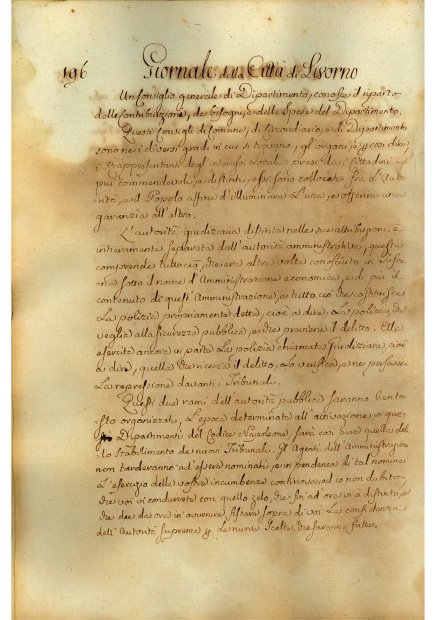 196 Giornale della Città di Livorno
Un Consiglio generale di Dipartimento, conosce il riparto
delle Contribuzione, de' bisogni, e delle Spese del Dipartimento.
Questi Consigli di Comune, di Circondiario, e di Dipartimento
sono ne i diversi gradi in cui si trovano, gli organi, e gli
i Rappresentanti degl' interessi Locali: presi da i Cittadini
più commendevoli, e distinti, essi sono collocati fra l'Auto
rità, e il Popolo affine d'illuminare l'una, e offerire una
garanzia all'altro.
L'autorità giudiziaria distinta nelle sue attribuzioni, è
intieramente separata dall'autorità amministrativa; questa
comprende tutto ciò, che era altra volta conosciuto in
sotto il nome d'Amministrazione economica, e di più il
contenuto di quest'Amministrazione, e tutto ciò che costituisce
La polizia propriamente detta, cioè a dire, La polizia, che
veglia alla sicurezza pubblica, e che previene il delitto. Ella
esercita ancora in parte La polizia chiamata giudiziaria, cioè
a dire, quella che ricerca il delitto, Lo verifica, e ne
La repressione davanti i Tribunali.
Questi due rami dell'autorità pubblica saranno ben to
sto organizzati, L'epoca determinata all'attivazione in que
sti Dipartimenti del Codice Napoleone, sarà così pure quella del
lo Stabilimento de nuovi Tribunali. Gl'Agenti dell'Amministrazione
non tarderanno ad essere nominati, e in pendenza di tal nomina
L'esercizio delle vostre incumbenze continova, ed io non dubito
che voi vi condurrete con quello zelo, che fin ad ora vi à distinto, e
che dee da ora in avvenire, fissare sopra di voi La confidenza
dell'Autorità Suprema p. le nuove Scelte, che saranno fatte.